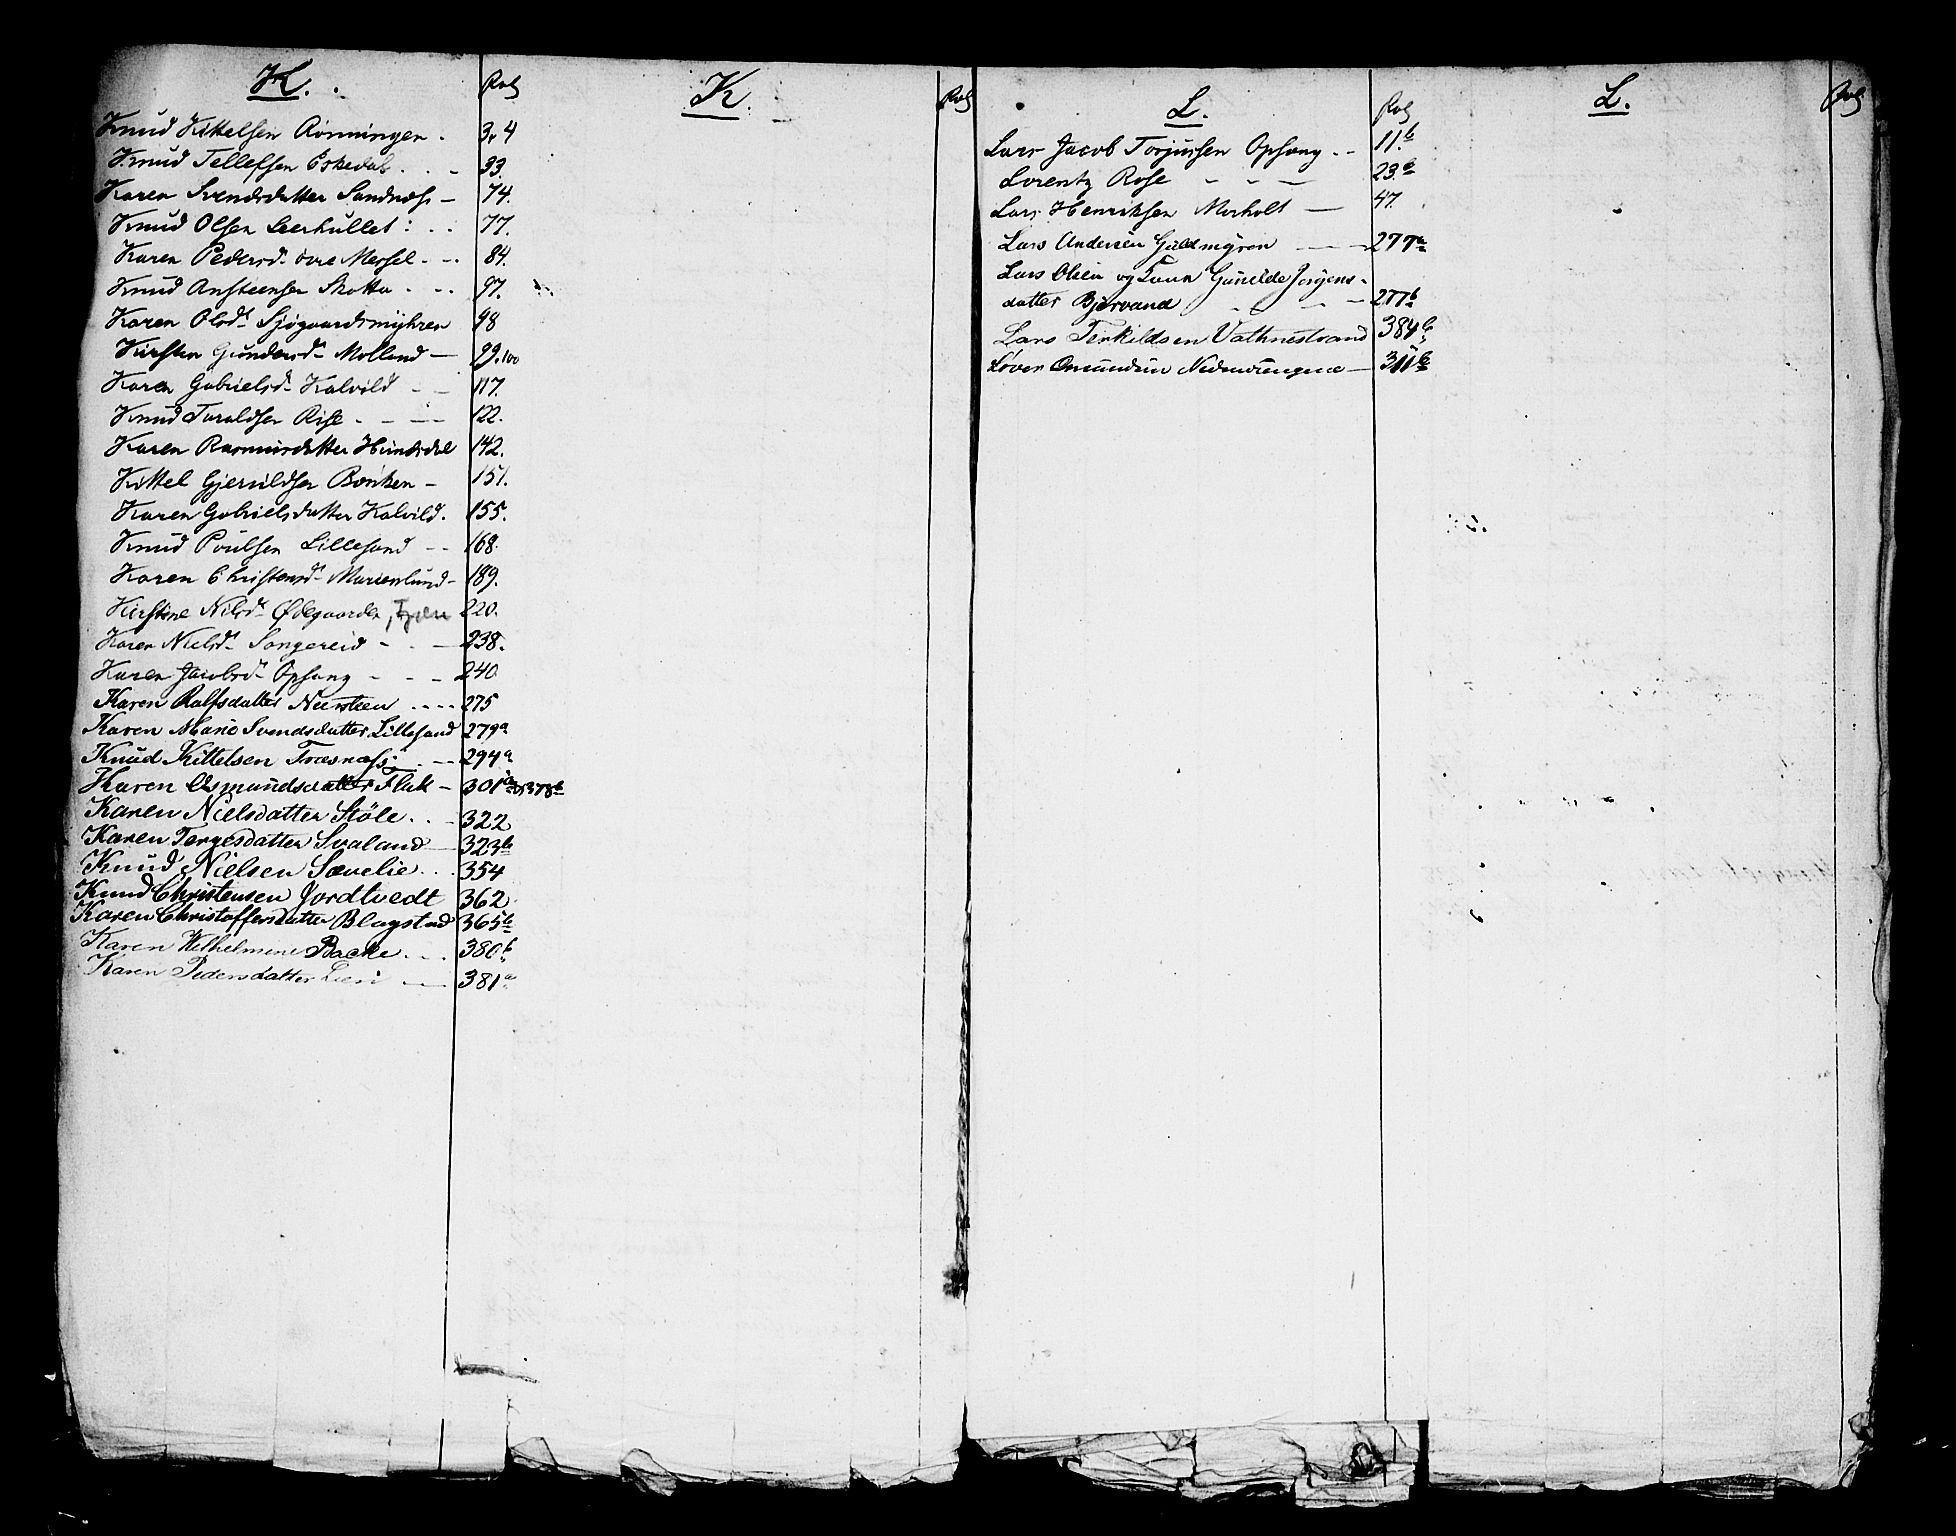 K.
Pag
Knud Kittelsen Rönningen . 3, 4
Knud Tellefsen Eskedal . . - 33.
Karen Svendsdatter Sandnæs - 74.
Knud Olsen Leerhullet : . . 77.
Karen Pedersd. övre Messel - .. 84.
Knud Ansteensen Skotta . . .. 97.
Karen Olsd. Sjögaardsmyhren 98
Kirsten Gundersd. Molland — 99. 100
Karen Gabrielsd. Kalvild - — 117.
Knud Taraldsen Rise - - — 122.
Karen Rasmusdatter Hundsdal 142.
Kittel Gjeruldsen - 151.
Karen Gabrielsdatter Kalvild. 155.
Knud Poulsen Lillesand - - 168.
Karen Christensd. Marienlund - 189.
Kirstine Nilsd. Ødegaarden, 220.
Karen Nielsd. Songereid - . — 238.
Karen Jacobsd. Opsang - - - 240
Karen Rolfsdatter .... 275
Karen Marie Svendsdatter Lillesand 279a
Knud Kittelsen Træsnæs . - — 294a
Karen Osmundsdatter Flak - 301a 378b
Karen Nielsdatter Støle . . - 322
Karen Tergesdatter Svaland — 323b
Knud Nielsen Sævelie . . . 354
Knud Christensen Jordtvedt 362
Karen Christoffersdatter Blagstad 365b
Karen Wilhelmine Backe . . . 380b
Karen Pedersdatter — 381a
K.
Pag
L.
Pag
Lars Jacob Torjussen Opsang . - 11.b
Lorentz Rose - - — 23.b
Lars Henriksen Morholt — 47.
Lars Andersen Guldmyren — - — 277a
Lars Olsen og Gunilde Jörgens-
datter Bjorvand - - - — 277b
Lars Terkildsen Vathnestrand 384b
Löver Omundsen — 311b
L.
Pag